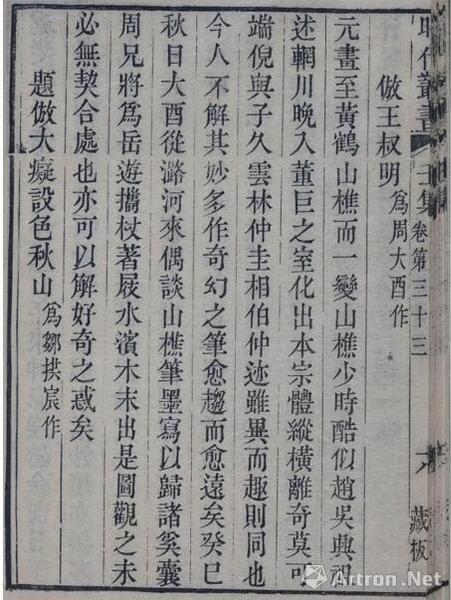 昭代叢書 集卷第三十三 六 藏板
倣王叔明 爲周大酉作
元畫至黃鶴山樵而一變山樵少時酷似趙吳興祖
述輞川晚入董巨之室化出本宗體縱橫離奇莫可
端倪與子久雲林仲圭相伯仲迹雖異而趣則同也
今人不解其妙多作奇幻之筆愈趨而愈遠矣癸巳
秋日大酉從潞河來偶談山樵筆墨寫以歸諸奚囊
周兄將爲岳遊擕杖著屐水濱木末出是圖觀之未
必無契合處也亦可以解好奇之惑矣
題倣大癡設色秋山 爲鄒拱宸作
Artron.Net